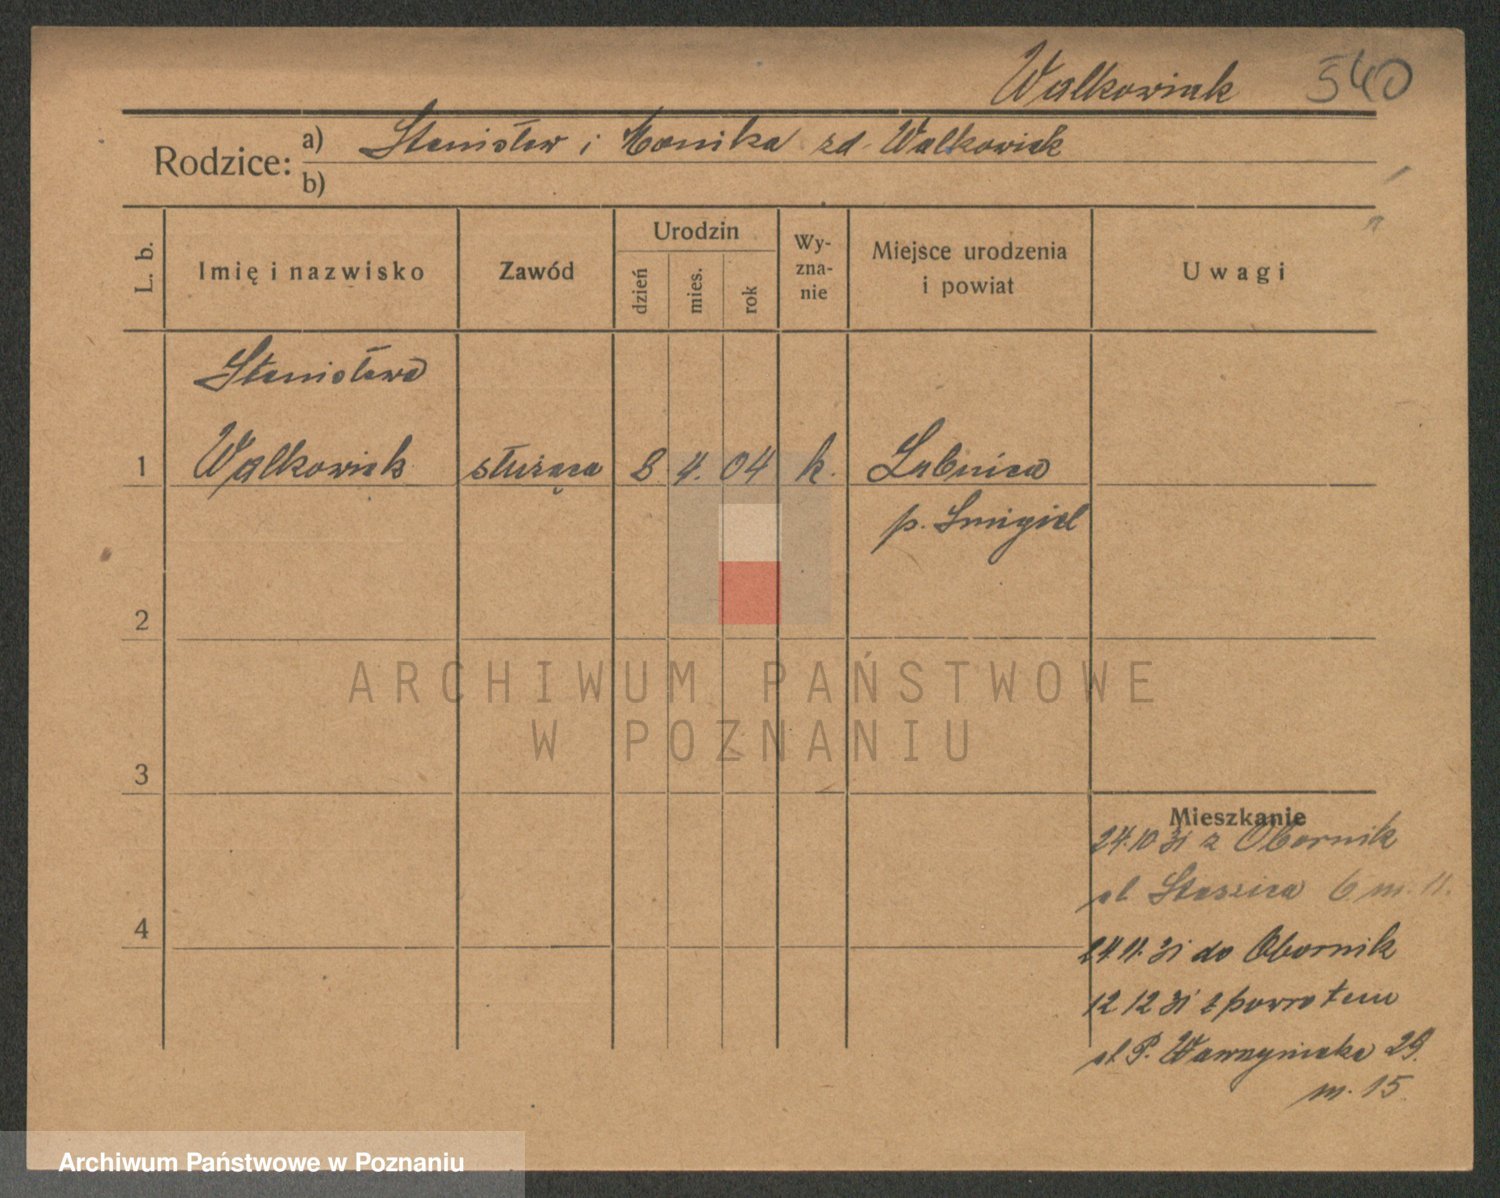 Walkowiak 540
Rodzice: a) Stanisław i Monika zd Walkowiak
b)
L. b.
Imię i nazwisko
Zawód
Urodzin
dzień
mies.
rok
Wy-
zna-
nie
Miejsce urodzenia
i powiat
Uwagi
Stanisława
1 Walkowiak służąca 8 4. 04 k. Łubnica
p. Śmigiel
2
ARCHIWUM PAŃSTWOWE
W POZNANIU
3
Mieszkanie
24.10 31 z Obornik
ul. Staszica 6 m. 11.
4
24.11.31 do Obornik
12 12 31 z powrotem
ul. P. Wawrzyniaka 29.
m. 15.
Archiwum Państwowe w Poznaniu